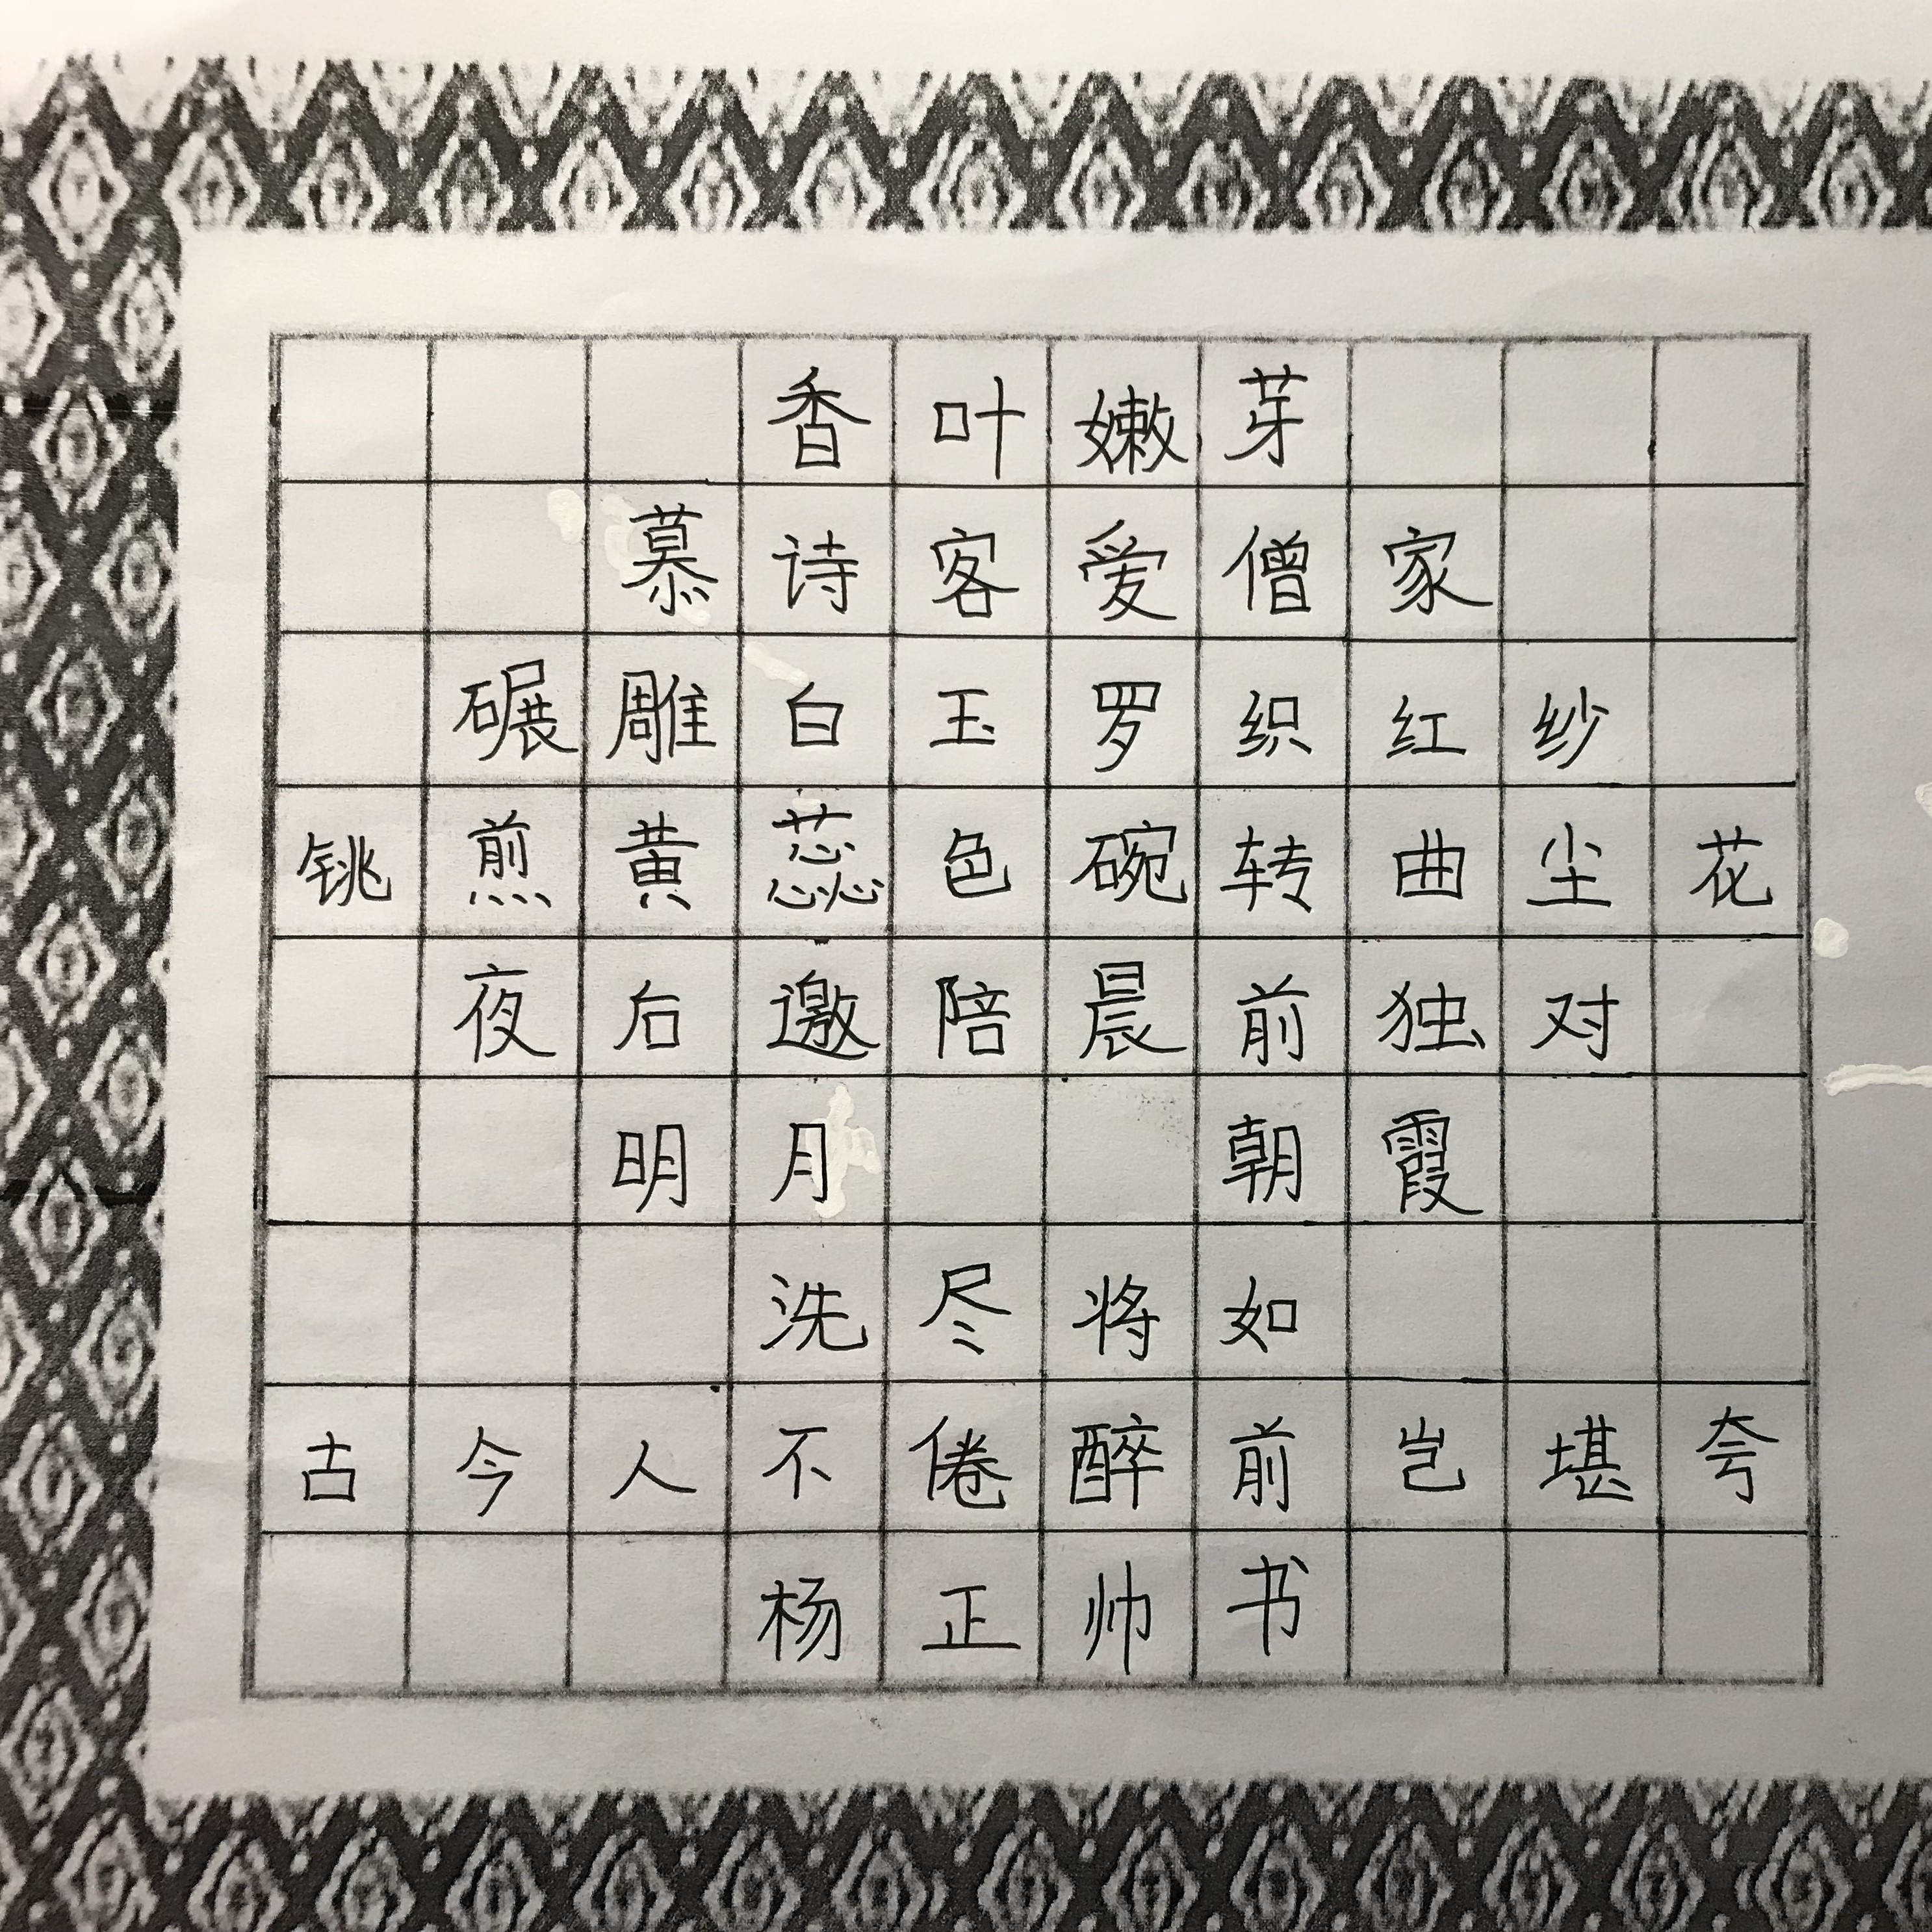 香叶嫩芽
慕诗客爱僧家
碾雕白玉罗织红纱
铫煎黄蕊色碗转曲尘花
夜后邀陪晨前独对
明月朝霞
洗尽将如
古今人不倦醉前岂堪夸
杨正帅书